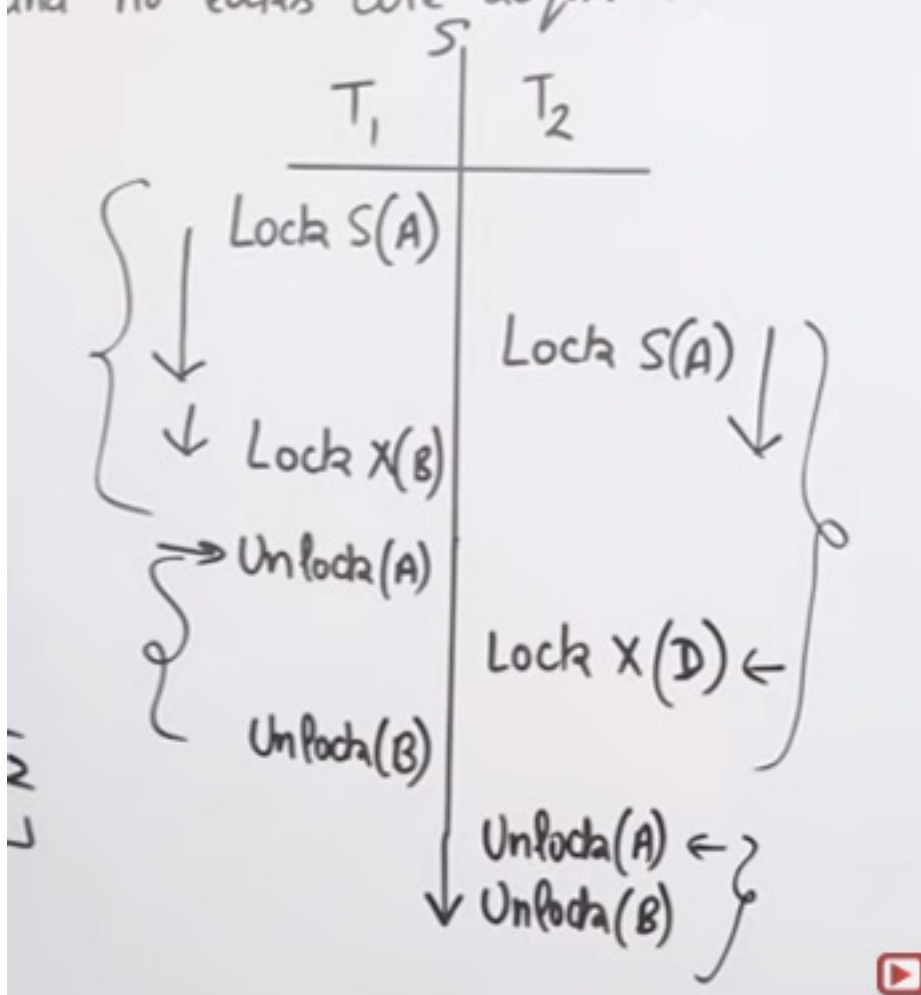 S
T1 T2
Lock S(A)
Lock S(A)
Lock X(B)
Unlock(A)
Lock X(D)
Unlock(B)
Unlock(A)
Unlock(B)